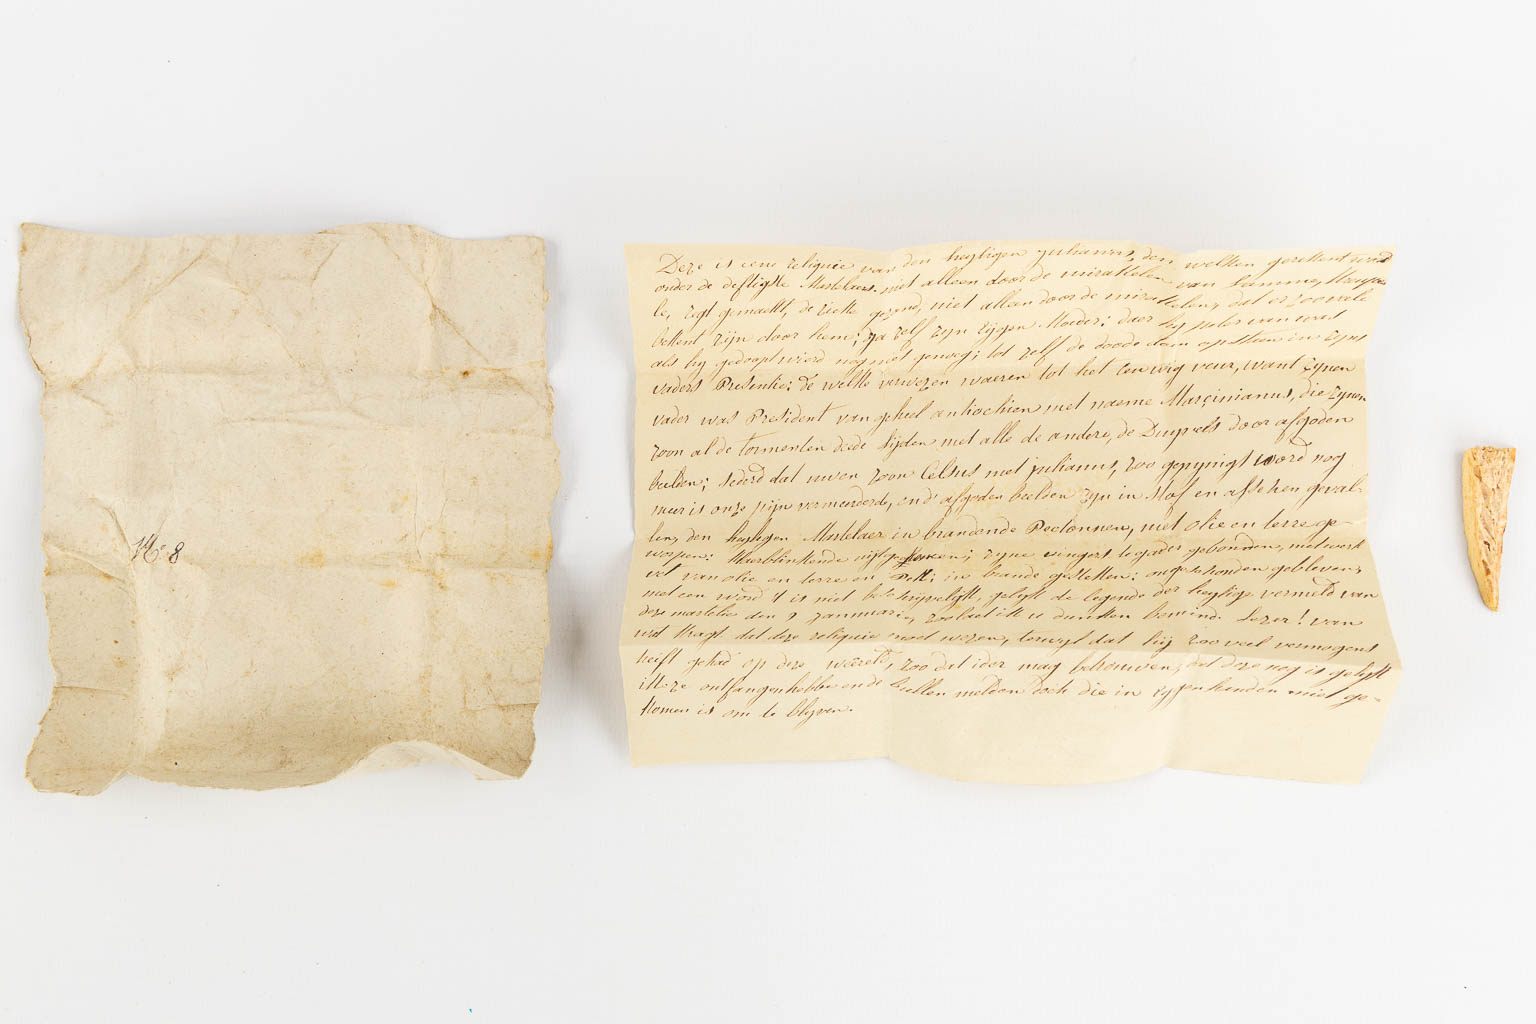 N: 8
Deze is eene reliquie van den heyligen julianus, den welken gerekent word
onder de deftigste Martelaers. niet alleen door de mirakkelen van lamme, kreupe
le, regt gemaekt, de zieke gezond, niet alleen door de mirakkelen, dat er zoo vele
bekent zijn door hem; ja zelf zyn eygen Moeder; daer hy peter van was
als hy gedoopt wierd nog niet genoeg; tot zelf de doode doen opstaen in zyns
vaders Presentie; de welke verwezen waeren tot het Eeuwig veur, want zynen
vader was President van geheel antiochien met naeme Marcinianus, die zynen
zoon al de tormenten dede lijden met alle de andere, de Duyvels door afgoden
beelden; ziende dat uwen zoon Celsus met julianus, zoo gepynigt word nog
meer is onze pijn vermeerdert, ons afgoden beelden zyn in stof en asschen geval-
len, den heyligen Martelaer in brandende Pectonnen, met olie en terre ge-
worpen: zyne vingers te gader gebonden, met werk
uit van olie en terre en Pek; in brande gesteken: ongeschonden gebleven,
met een word 't is niet beschryvelyk, gelyk de legende der heylige vermeld van
deze martelie den 9 januarii, zoo laet ik u dunken beminde Lezer! van
wat kragt dat deze reliquie moet wezen, terwyl dat hij zoo veel vermogens
heeft gehad op deze wereld, zoo dat ider mag betrouwen, dat deze nog is gelyk
ik ze ontfangen hebbe en de bullen melden doch die in eygen handen niet ge-
komen is om te blyven.